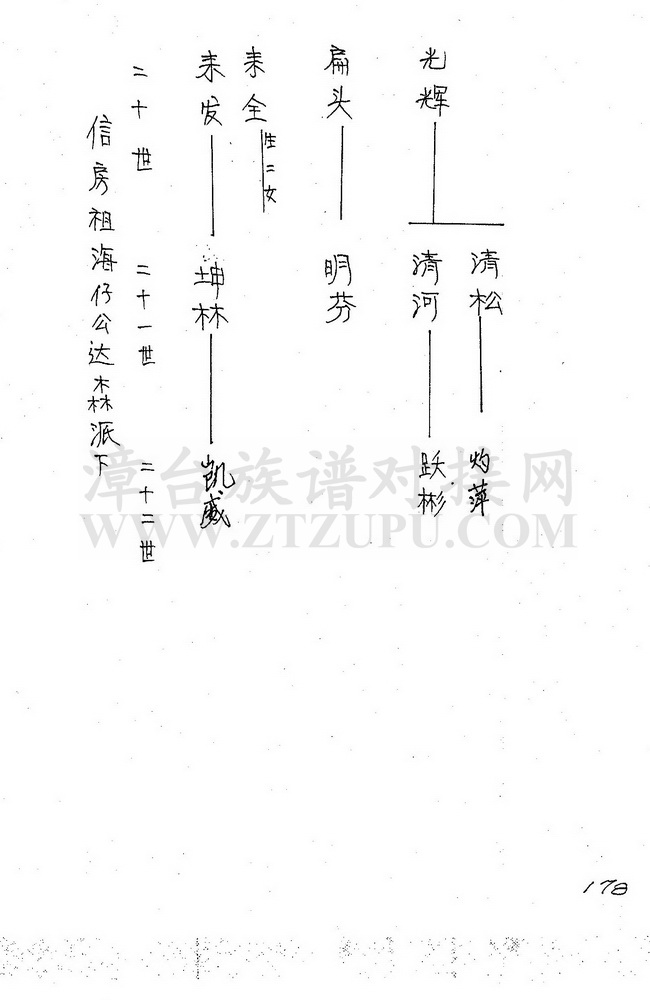 信房祖海仔公达森派下
二十世
二十一世
二十二世
光辉
扁头
来全
生二女
来发
清松
清河
明芬
坤林
灼萍
跃彬
凯威
漳台族谱对接网
WWW.ZTZUPU.COM
178